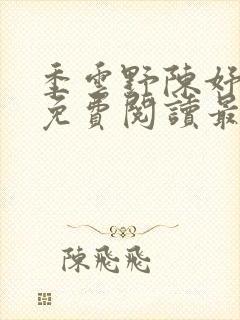 季雲野陳好
免費閱讀最
陳飛飛